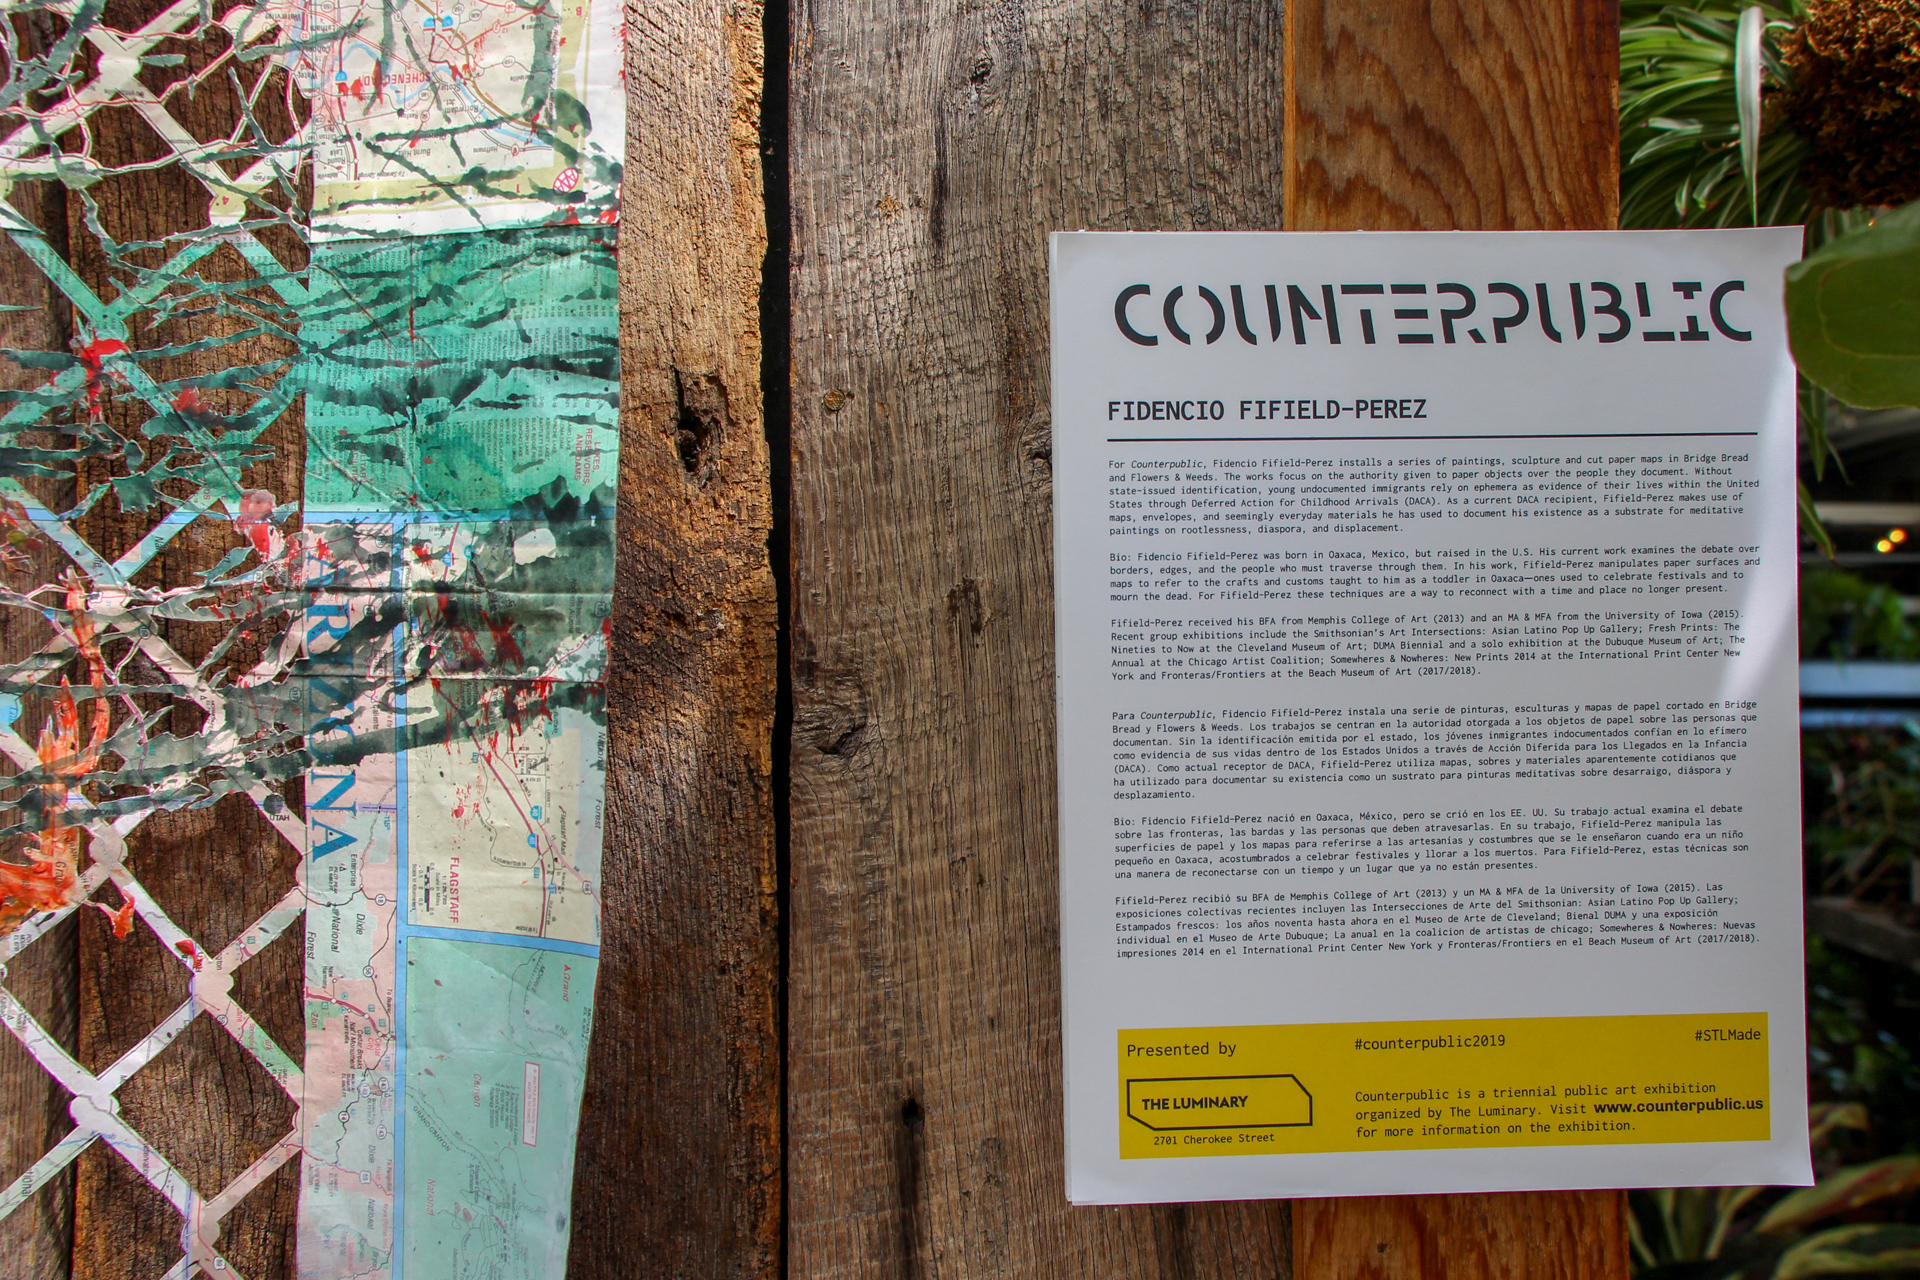 SCHENECTADY
Burnt Hills
LAKES,
RESERVOIRS
AND DAMS
ARIZONA
UTAH
FLAGSTAFF
Enterprise
Dixie
National
Forest
Zion
GRAND CANYON
National
COUNTERPUBLIC
FIDENCIO FIFIELD-PEREZ
For Counterpublic, Fidencio Fifield-Perez installs a series of paintings, sculpture and cut paper maps in Bridge Bread
and Flowers & Weeds. The works focus on the authority given to paper objects over the people they document. Without
state-issued identification, young undocumented immigrants rely on ephemera as evidence of their lives within the United
States through Deferred Action for Childhood Arrivals (DACA). As a current DACA recipient, Fifield-Perez makes use of
maps, envelopes, and seemingly everyday materials he has used to document his existence as a substrate for meditative
paintings on rootlessness, diaspora, and displacement.
Bio: Fidencio Fifield-Perez was born in Oaxaca, Mexico, but raised in the U.S. His current work examines the debate over
borders, edges, and the people who must traverse through them. In his work, Fifield-Perez manipulates paper surfaces and
maps to refer to the crafts and customs taught to him as a toddler in Oaxaca—ones used to celebrate festivals and to
mourn the dead. For Fifield-Perez these techniques are a way to reconnect with a time and place no longer present.
Fifield-Perez received his BFA from Memphis College of Art (2013) and an MA & MFA from the University of Iowa (2015).
Recent group exhibitions include the Smithsonian's Art Intersections: Asian Latino Pop Up Gallery; Fresh Prints: The
Nineties to Now at the Cleveland Museum of Art; DUMA Biennial and a solo exhibition at the Dubuque Museum of Art; The
Annual at the Chicago Artist Coalition; Somewheres & Nowheres: New Prints 2014 at the International Print Center New
York and Fronteras/Frontiers at the Beach Museum of Art (2017/2018).
Para Counterpublic, Fidencio Fifield-Perez instala una serie de pinturas, esculturas y mapas de papel cortado en Bridge
Bread y Flowers & Weeds. Los trabajos se centran en la autoridad otorgada a los objetos de papel sobre las personas que
documentan. Sin la identificación emitida por el estado, los jóvenes inmigrantes indocumentados confían en lo efímero
como evidencia de sus vidas dentro de los Estados Unidos a través de Acción Diferida para los Llegados en la Infancia
(DACA). Como actual receptor de DACA, Fifield-Perez utiliza mapas, sobres y materiales aparentemente cotidianos que
ha utilizado para documentar su existencia como un sustrato para pinturas meditativas sobre desarraigo, diáspora y
desplazamiento.
Bio: Fidencio Fifield-Perez nació en Oaxaca, México, pero se crió en los EE. UU. Su trabajo actual examina el debate
sobre las fronteras, las bardas y las personas que deben atravesarlas. En su trabajo, Fifield-Perez manipula las
superficies de papel y los mapas para referirse a las artesanías y costumbres que se le enseñaron cuando era un niño
pequeño en Oaxaca, acostumbrados a celebrar festivales y llorar a los muertos. Para Fifield-Perez, estas técnicas son
una manera de reconectarse con un tiempo y un lugar que ya no están presentes.
Fifield-Perez recibió su BFA de Memphis College of Art (2013) y un MA & MFA de la University of Iowa (2015). Las
exposiciones colectivas recientes incluyen las Intersecciones de Arte del Smithsonian: Asian Latino Pop Up Gallery;
Estampados frescos: los años noventa hasta ahora en el Museo de Arte de Cleveland; Bienal DUMA y una exposición
individual en el Museo de Arte Dubuque; La anual en la coalicion de artistas de chicago; Somewheres & Nowheres: Nuevas
impresiones 2014 en el International Print Center New York y Fronteras/Frontiers en el Beach Museum of Art (2017/2018).
Presented by
#counterpublic2019
#STLMade
THE LUMINARY
2701 Cherokee Street
Counterpublic is a triennial public art exhibition
organized by The Luminary. Visit www.counterpublic.us
for more information on the exhibition.